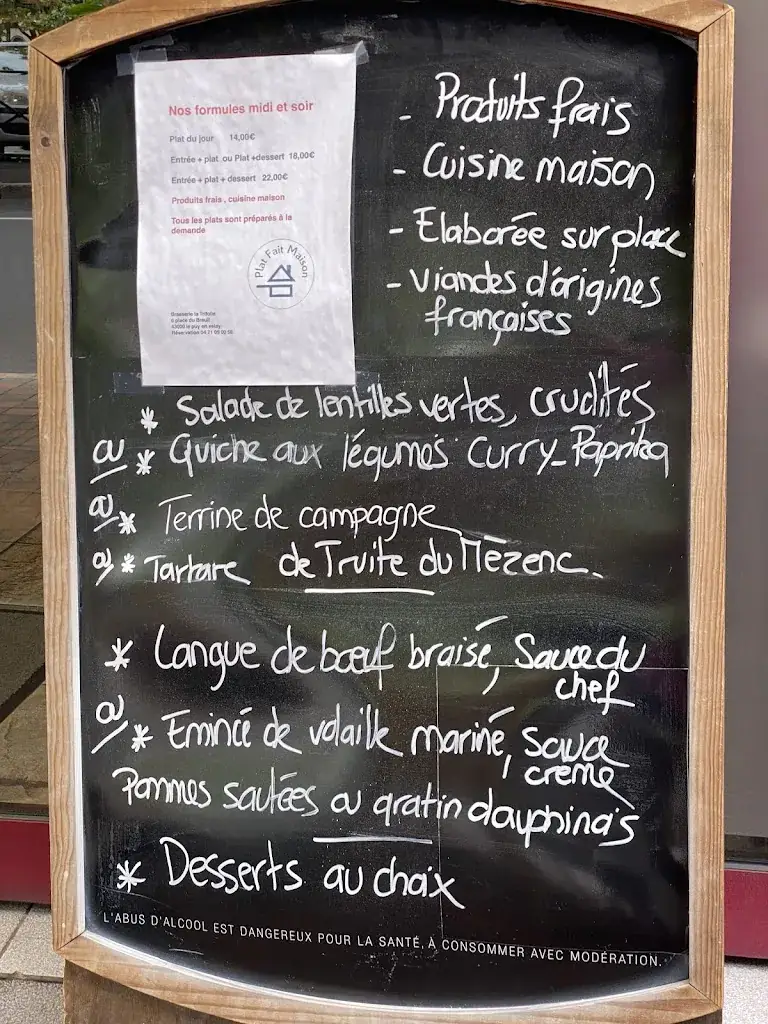 Nos formules midi et soir
Plat du jour 14,00€
Entrée + plat ou Plat +dessert 18,00€
Entrée + plat + dessert 22,00€
Produits frais , cuisine maison
Tous les plats sont préparés à la
demande
Plat Fait Maison
Brasserie la
place du Breuil
43000 le puy en velay
Réservation 04 71 09
- Produits frais
- Cuisine maison
- Elaborée sur place
- Viandes d'origines
françaises
* Salade de lentilles vertes, crudités
ou * Quiche aux légumes Curry-Paprika
ou * Terrine de campagne
ou * Tartare de Truite du Mézenc.
* Langue de bœuf braisé, Sauce du
chef
ou * Emincé de volaille mariné, Sauce
crème
Pommes sautées ou gratin dauphinois
* Desserts au choix
L'ABUS D'ALCOOL EST DANGEREUX POUR LA SANTÉ, À CONSOMMER AVEC MODÉRATION.